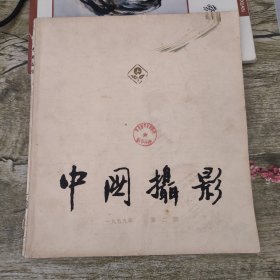 中国摄影
一九七九年 第二期